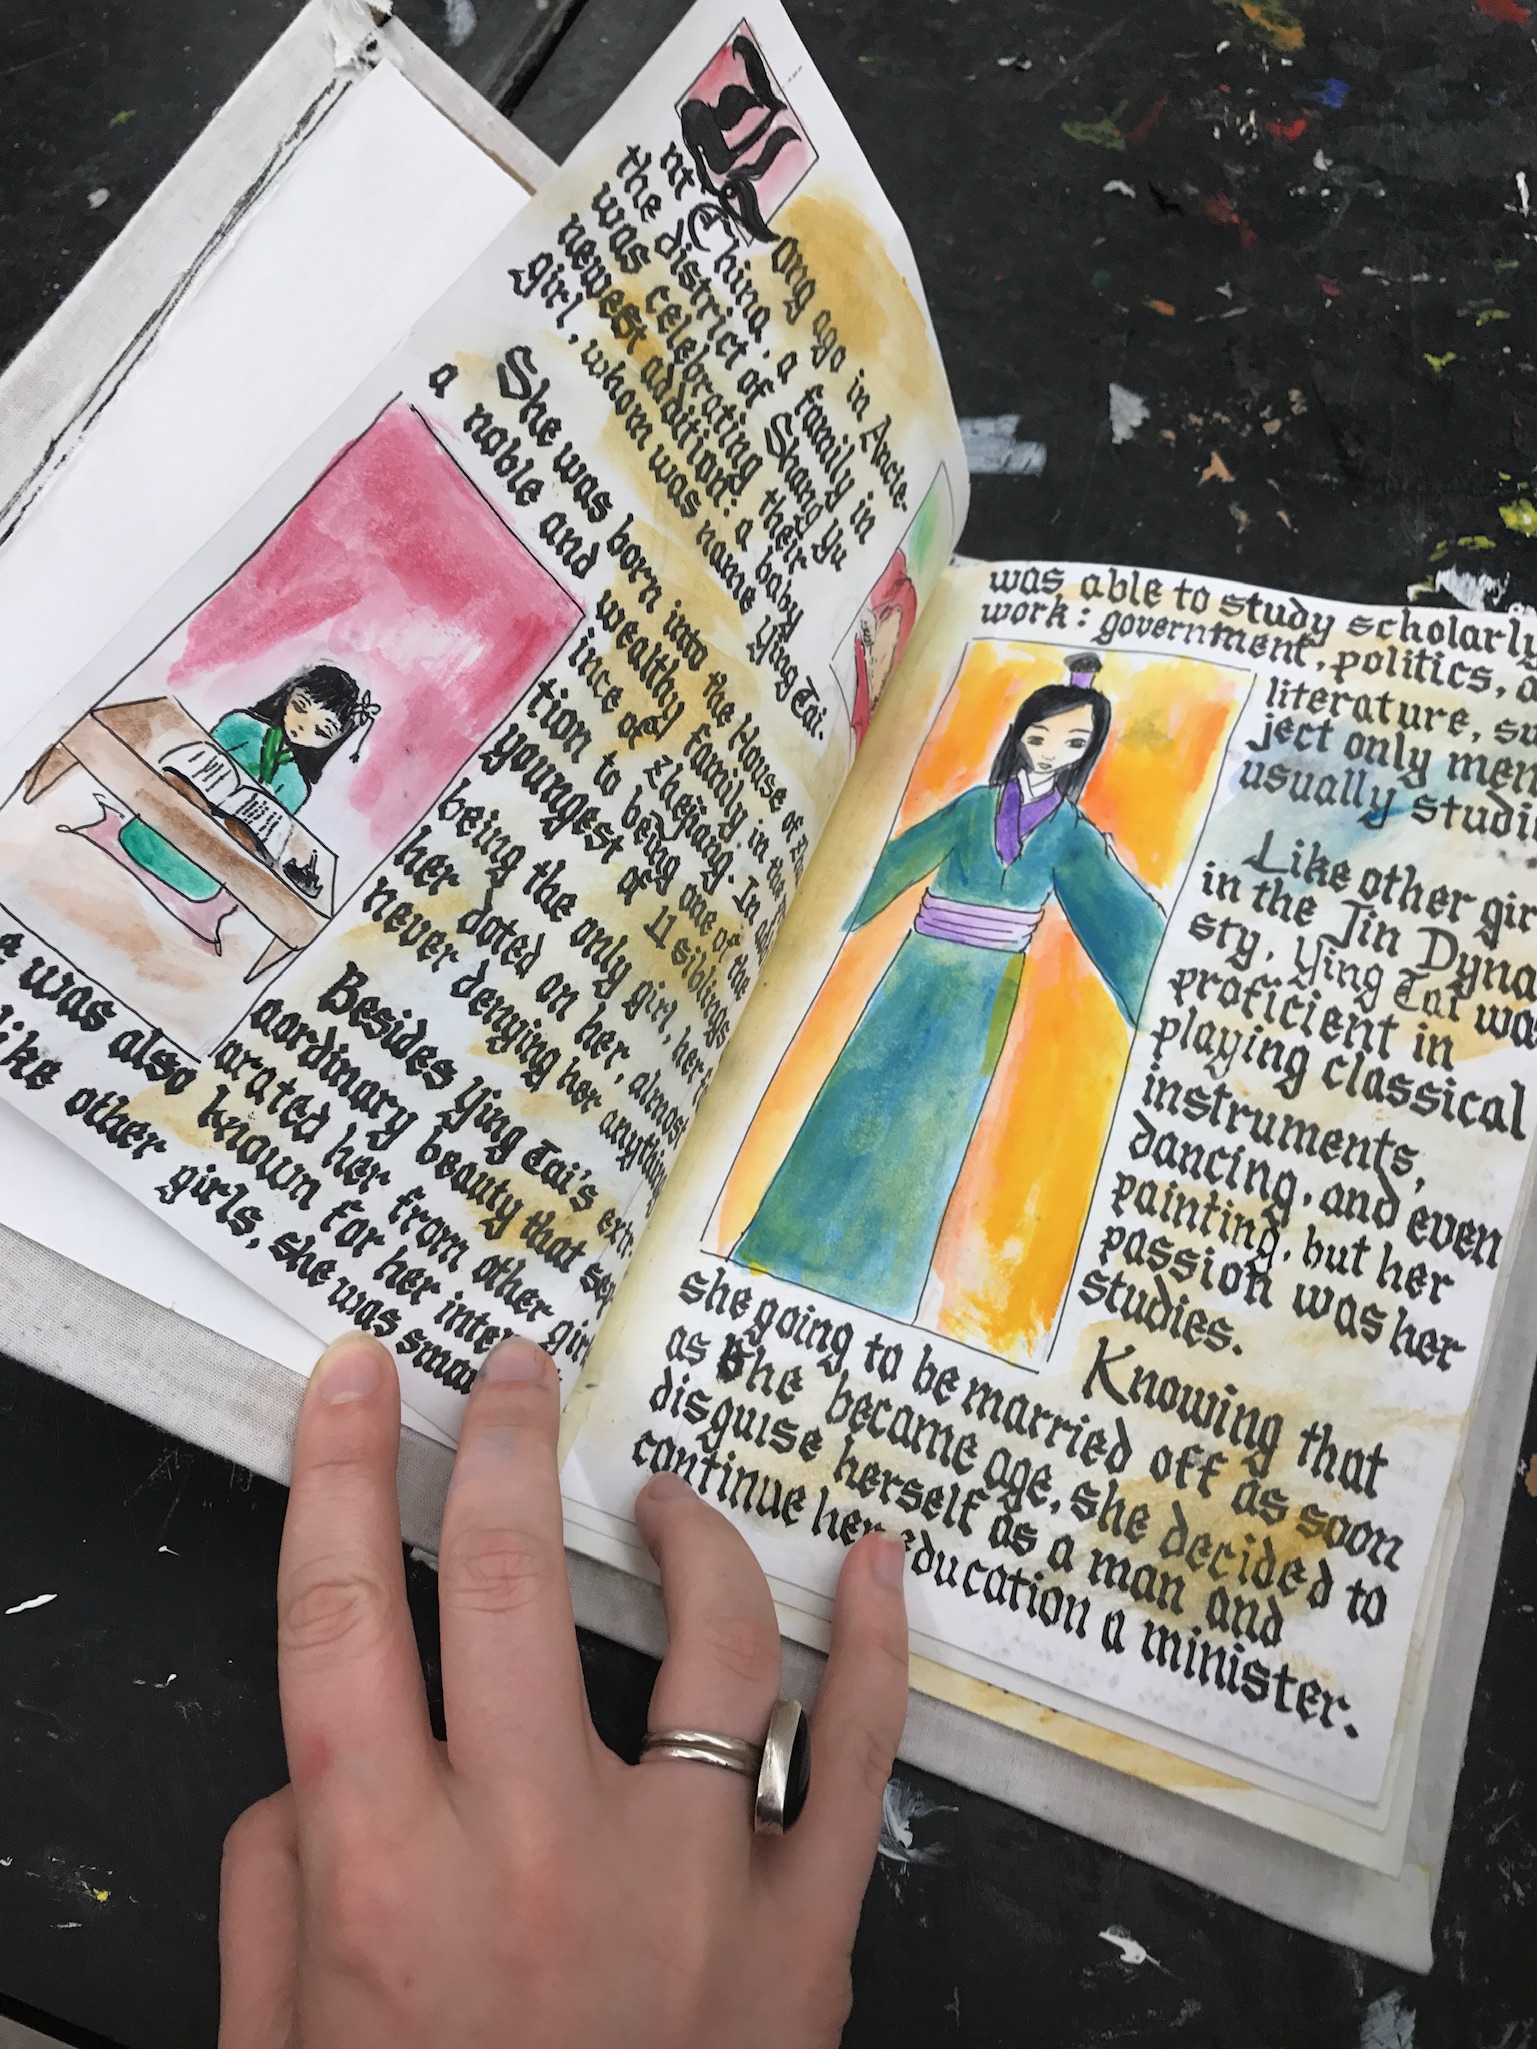 Long ago in Ancie-
nt China, a family in
the district of Shang Yu
was celebrating their
newest addition: a baby
girl, whom was name Ying Tai.
She was born into the House of
a noble and wealthy family in the
ince of Zhejiang. In
tion to being one of the
youngest of 11 siblings
being the only girl, her
her doted on her, almost
never denying her anything
Besides Ying Tai's extr-
aordinary beauty that sep
arated her from other girl
was also known for her
like other girls, she was smar
was able to study scholarly
work: government, politics,
literature, su
ject only men
usually studi
Like other gir
in the Jin Dyna
sty, Ying Tai was
proficient in
playing classical
instruments,
dancing, and even
painting, but her
passion was her
studies.
Knowing that
she going to be married off as soon
as she became age, she decided to
disguise herself as a man and
continue her education a minister.